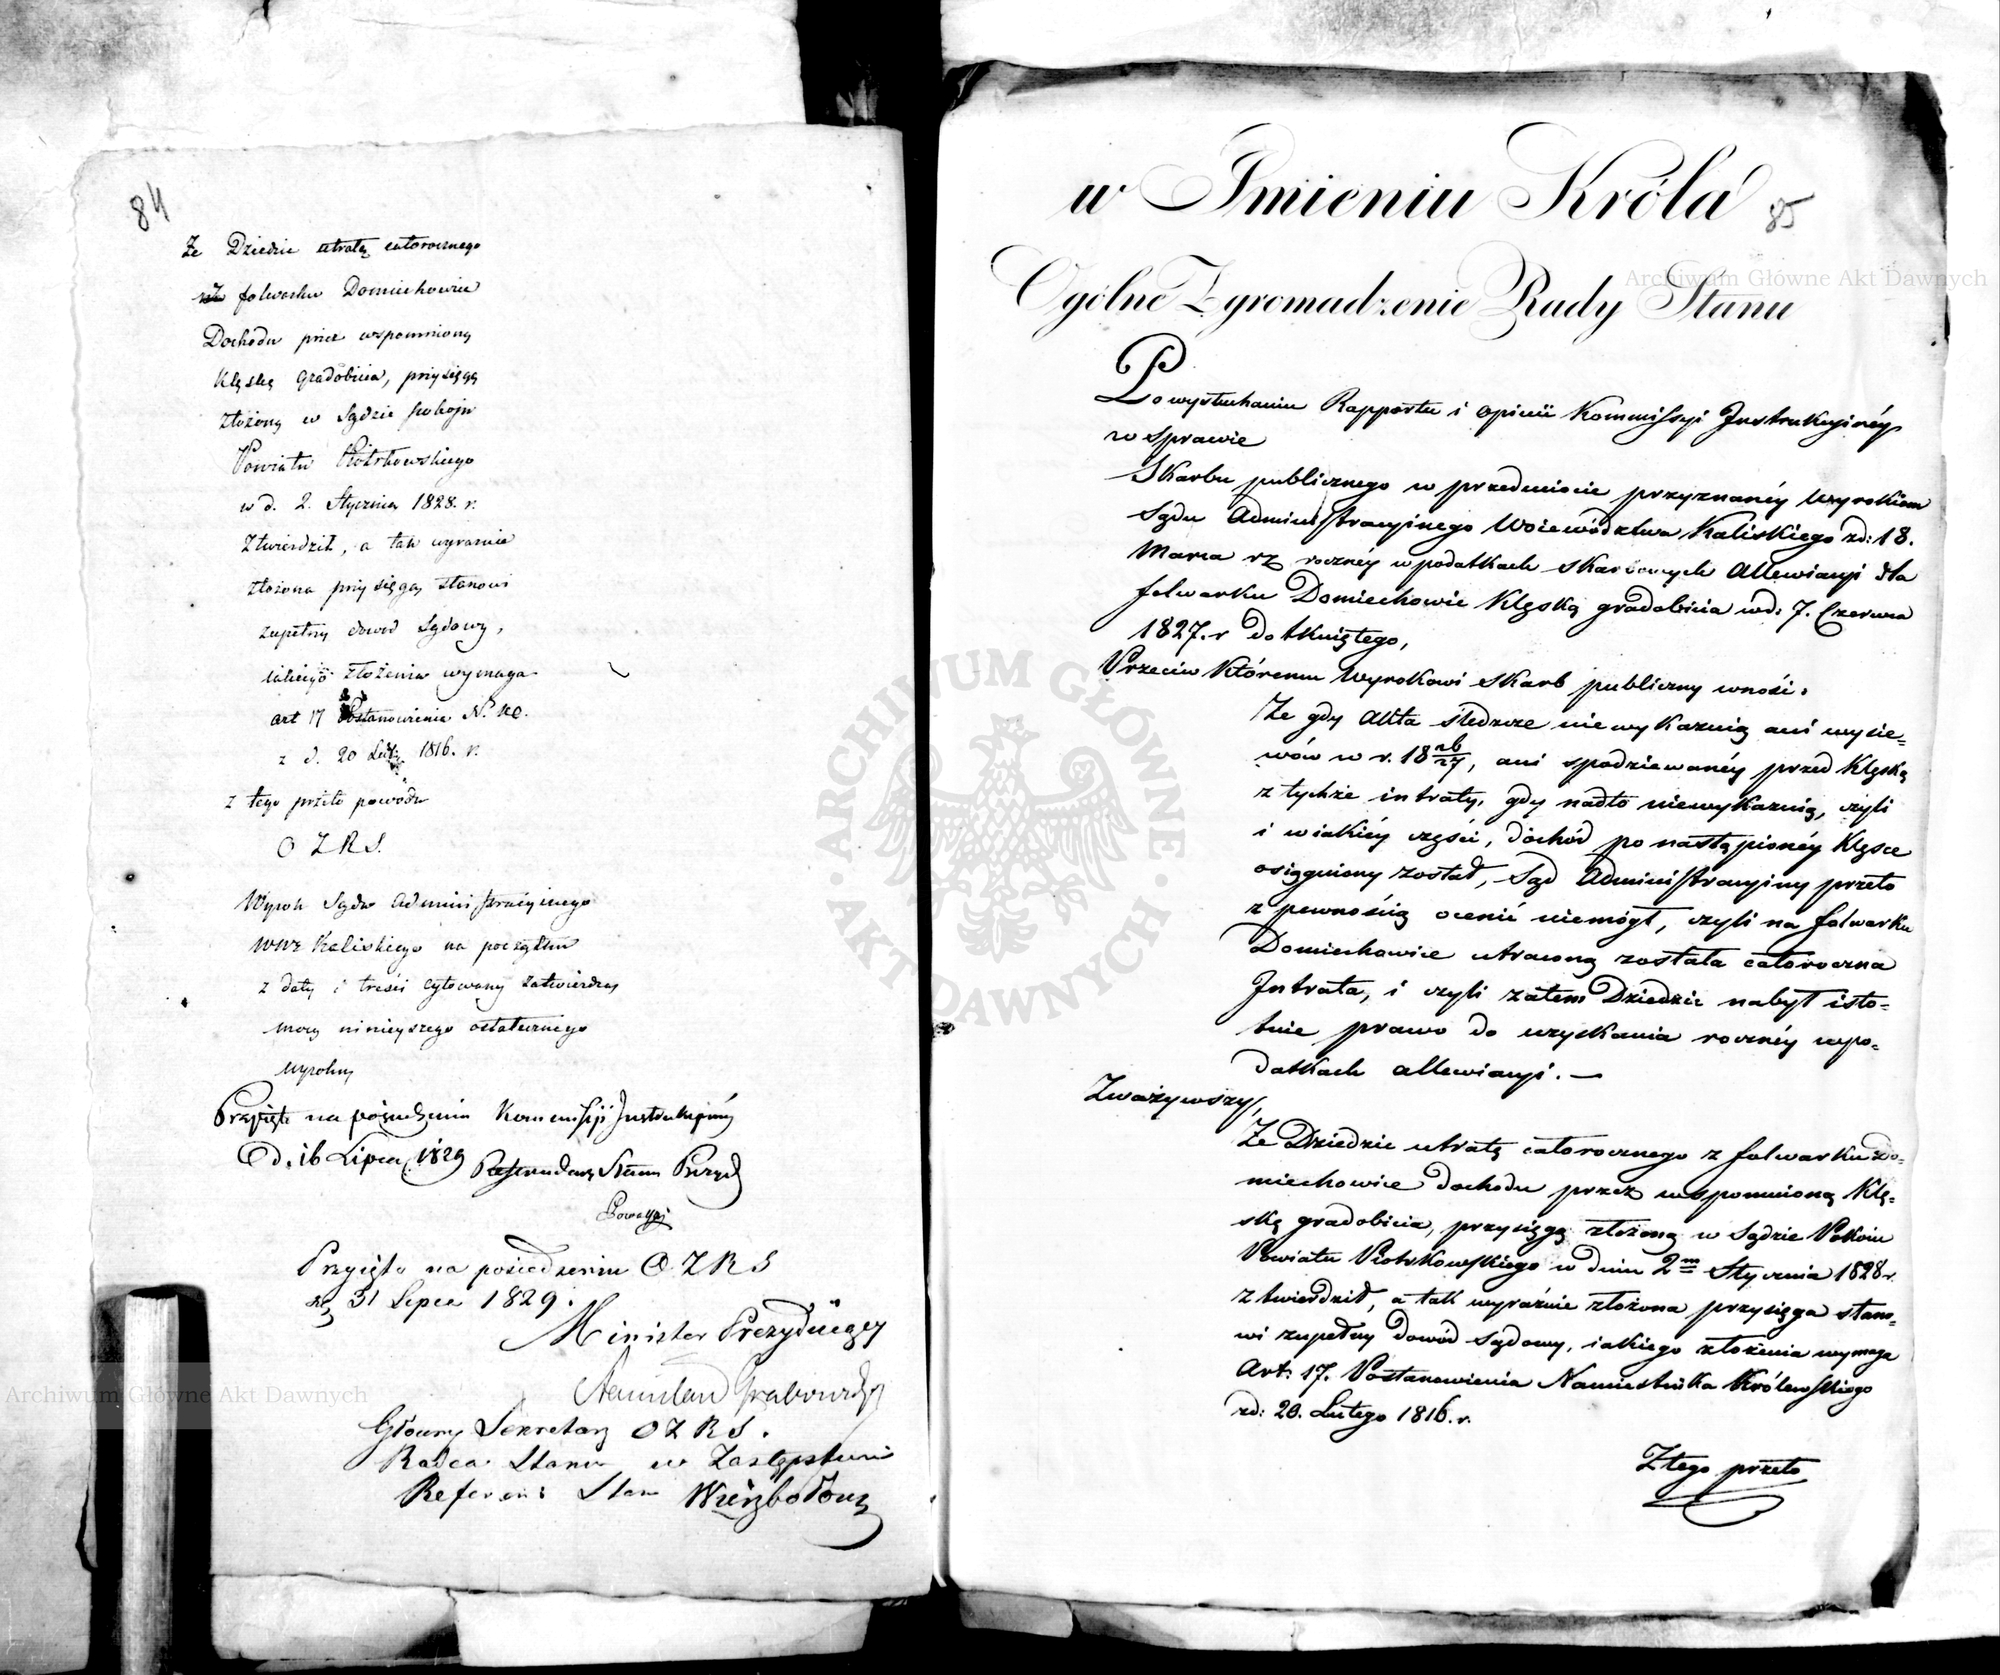 84
Że Dziedzic utratę całorocznego
z folwarku Domiechowice
Dochodu przez wspomnioną
Klęskę gradobicia, przysięgą
złożoną w Sądzie pokoju
Powiatu Piotrkowskiego
w d. 2. Stycznia 1828. r.
Ztwierdził, a tak wyraźnie
złożona przysięga stanowi
zupełny dowód Sądowy,
iakiego złożenia wymaga
art 17 Postanowienia N. K.
z d. 20 Lut: 1816. r.
z tego przeto powodu
O Z R S.
Wyrok Sądu Administracyinego
Wwa Kaliskiego na początku
z daty i treści cytowany zatwierdza
mocą ninieyszego ostatecznego
wyroku
Przyięto na posiedzeniu Kommissyi Instrukcyinéy
d. 16 Lipca 1829 Referendarz Stanu Prezyd
Przyięto na posiedzeniu O. Z R S
31 Lipca 1829.
Minister Prezyduiący
Stanisław Grabowski
Główny Sekretarz O Z R S.
Radca Stanu w Zastępstwie
Referen: Stan Wierzbołowicz
w Imieniu Króla
85
Ogólne Zgromadzenie Rady Stanu
Po wysłuchaniu Rapportu i opinii Kommissyi Instrukcyinéy
w sprawie
Skarbu publicznego w przedmiocie przyznanéy wyrokiem
Sądu Administracyinego Województwa Kaliskiego zd: 18.
Marca rz rocznéy w podatkach skarbowych allewiacyi dla
folwarku Domiechowic Klęską gradobicia w d: 7. Czerwca
1827. r dotkniętego,
Przeciw któremu wyrokowi skarb publiczny wnosi:
Że gdy akta śledcze niewykazuią ani wysie=
wów w r. 18 26/27, ani spodziewanéy przed Klęską
z tychże intraty, gdy nadto niewykazuią, czyli
i w iakiéy części, dochód po nastąpionéy Klęsce
osiągniony został, Sąd Administracyiny przeto
z pewnością ocenić niemógł, czyli na folwarku
Domiechowice utraconą została całoroczna
Intrata, i czyli zatem Dziedzic nabył isto=
tnie prawo do uzyskania rocznéy w po=
datkach allewiacyi. —
Zważywszy,
Że Dziedzic utratę całorocznego z folwarku Do=
miechowice dochodu przez wspomnioną Klę=
skę gradobicia, przysięgą złożoną w Sądzie Pokoiu
Powiatu Piotrkowskiego w dniu 2m Stycznia 1828 r.
ztwierdził, a tak wyraźnie złożona przysięga stano=
wi zupełny dowód sądowy, iakiego złożenia wymaga
Art: 17. Postanowienia Namiestnika Królewskiego
zd: 20. Lutego 1816. r.
Ztego przeto
Archiwum Główne Akt Dawnych
Archiwum Główne Akt Dawnych
ARCHIWUM GŁÓWNE
AKT DAWNYCH